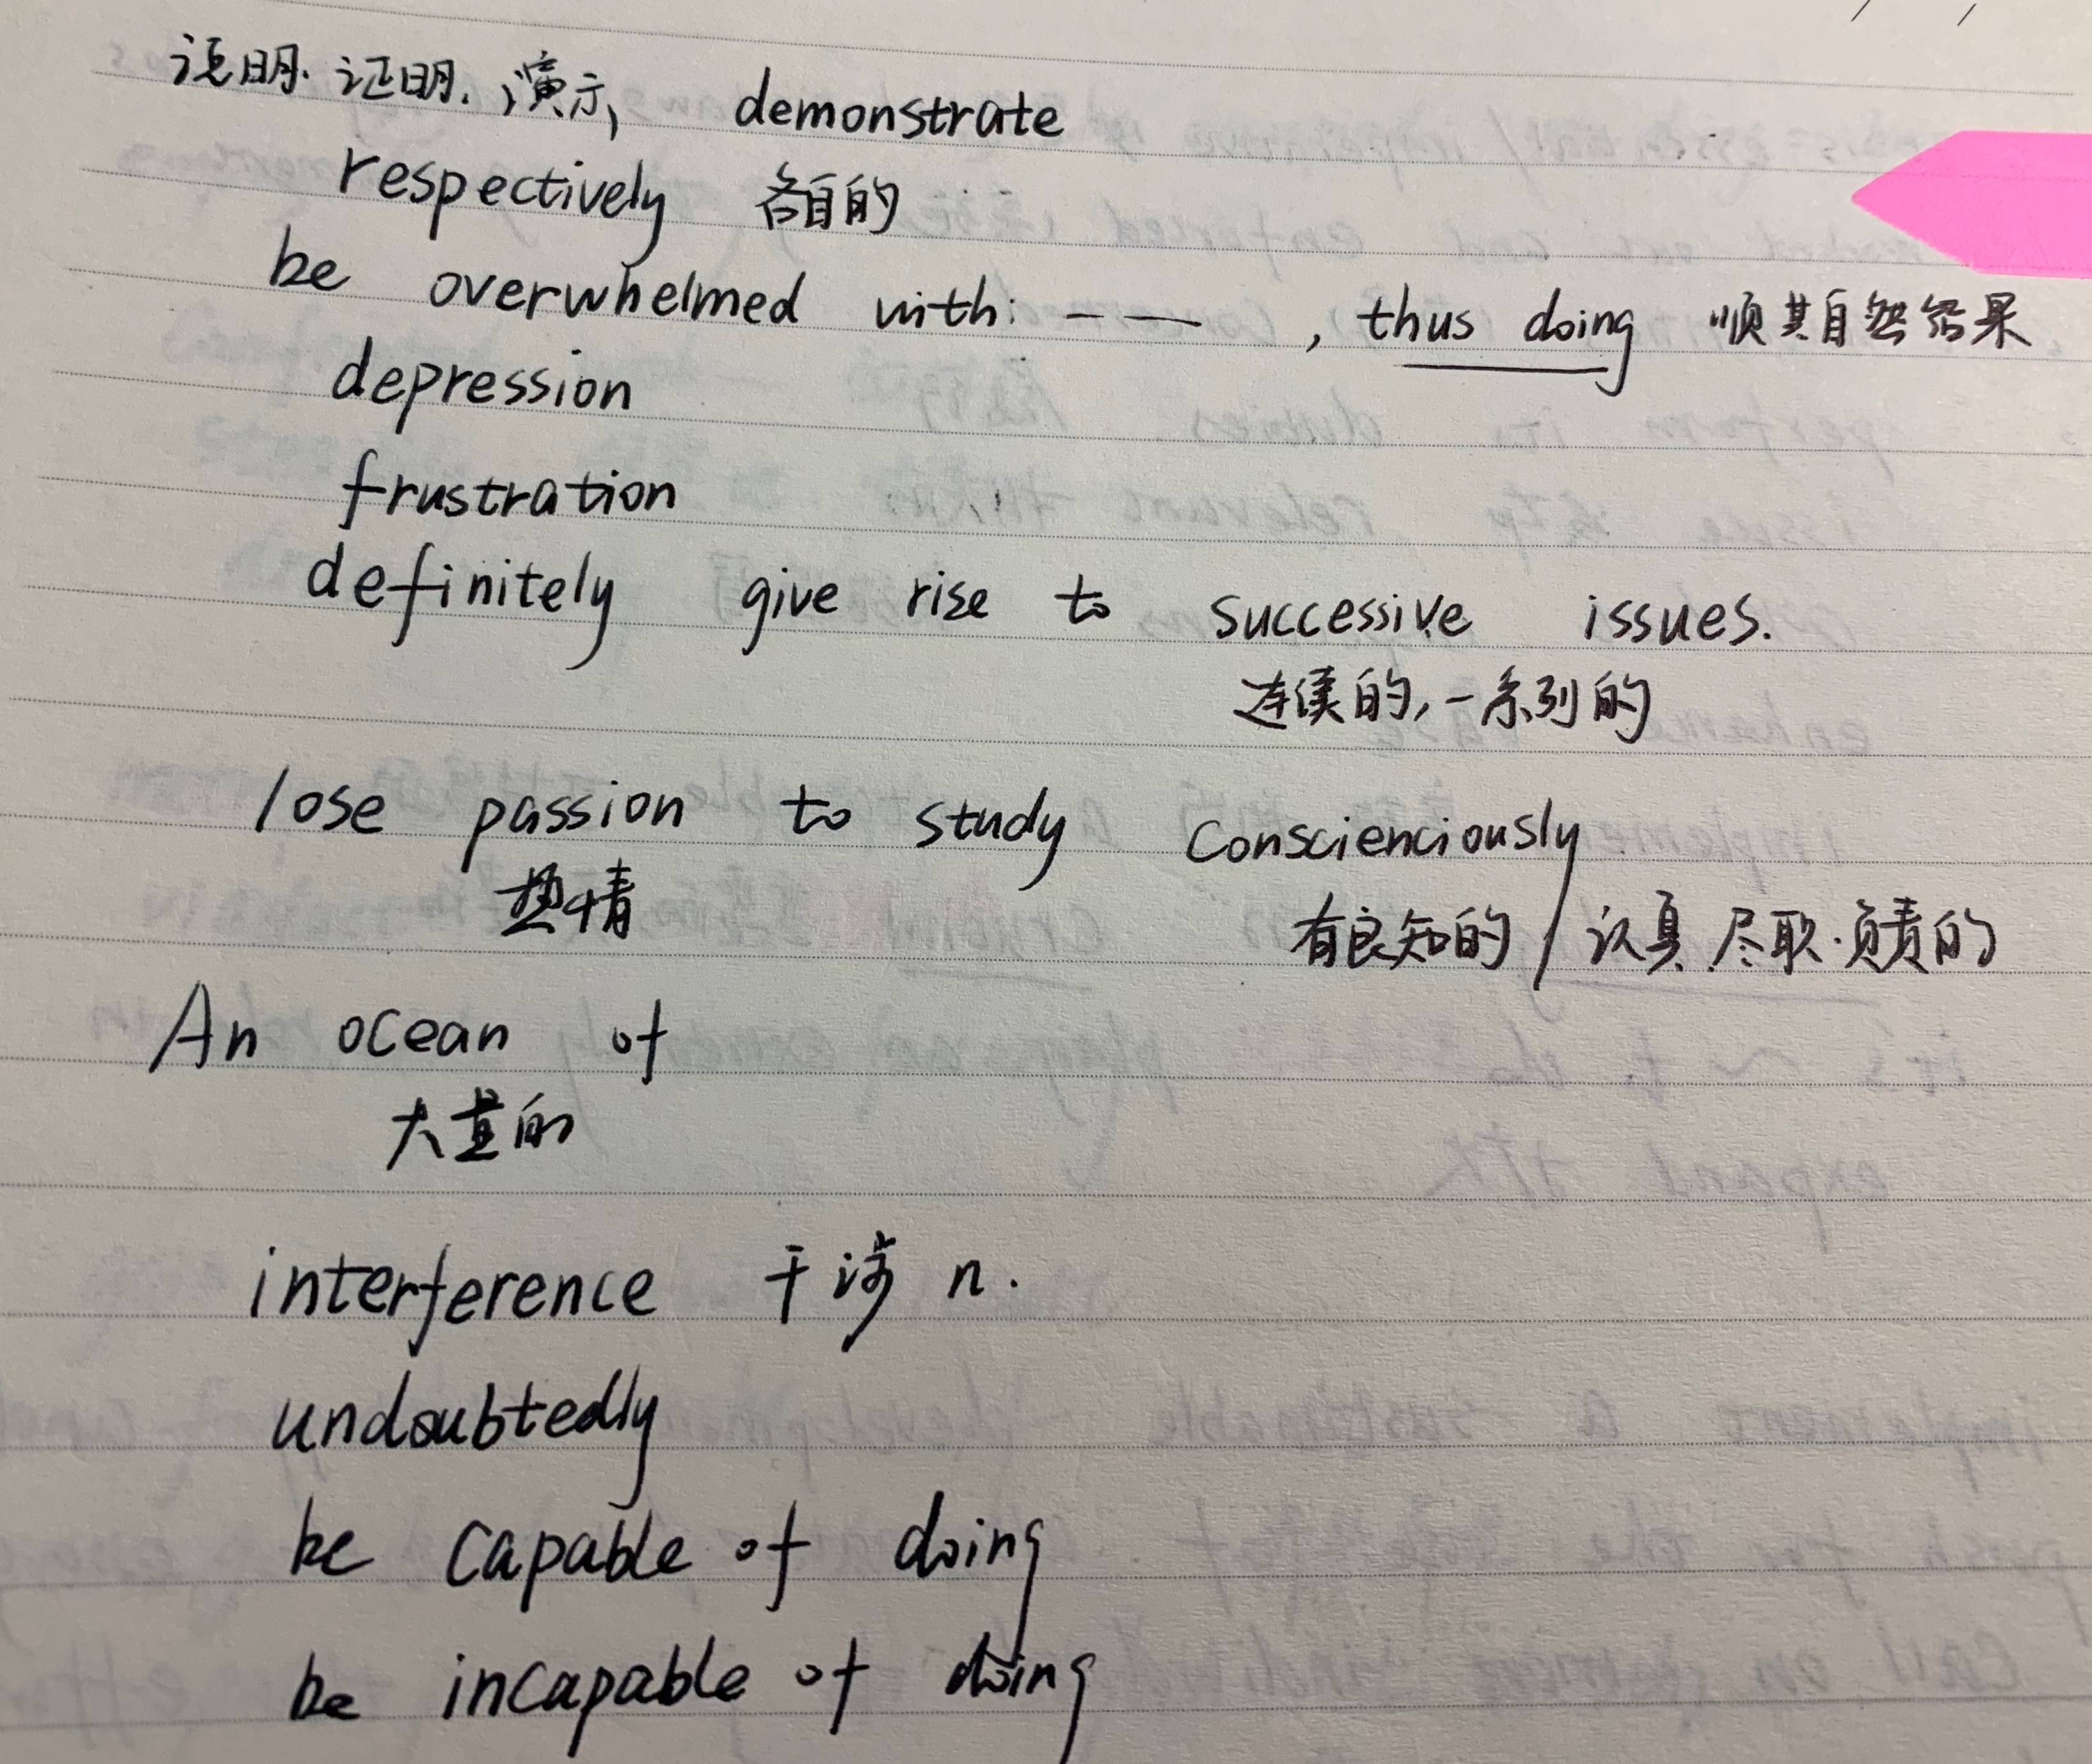 说明. 证明. 演示, demonstrate
respectively 各自的
be overwhelmed with: — — , thus doing 顺其自然结果
depression
frustration
definitely give rise to successive issues.
连续的, 一系列的
lose passion to study Conscienciously
热情 有良知的 / 认真 尽职. 负责的
An ocean of
大量的
interference 干涉 n.
undoubtedly
be capable of doing
be incapable of doing